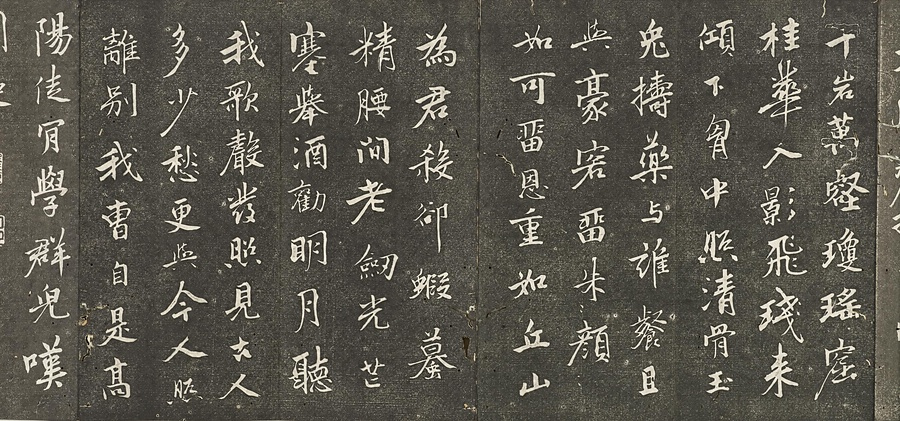 千岩萬壑瓊瑤窟
桂華入影飛琖来
傾下胷中照清骨玉
兔擣藥与誰餐且
與豪客畱朱顏
如可畱恩重如丘山
為君殺卻蝦蟇
精腰間老劒光芒
寒舉酒勸明月聽
我歌聲發照見古人
多少愁更與今人照
離别我曹自是髙
陽徒肎學群兒嘆